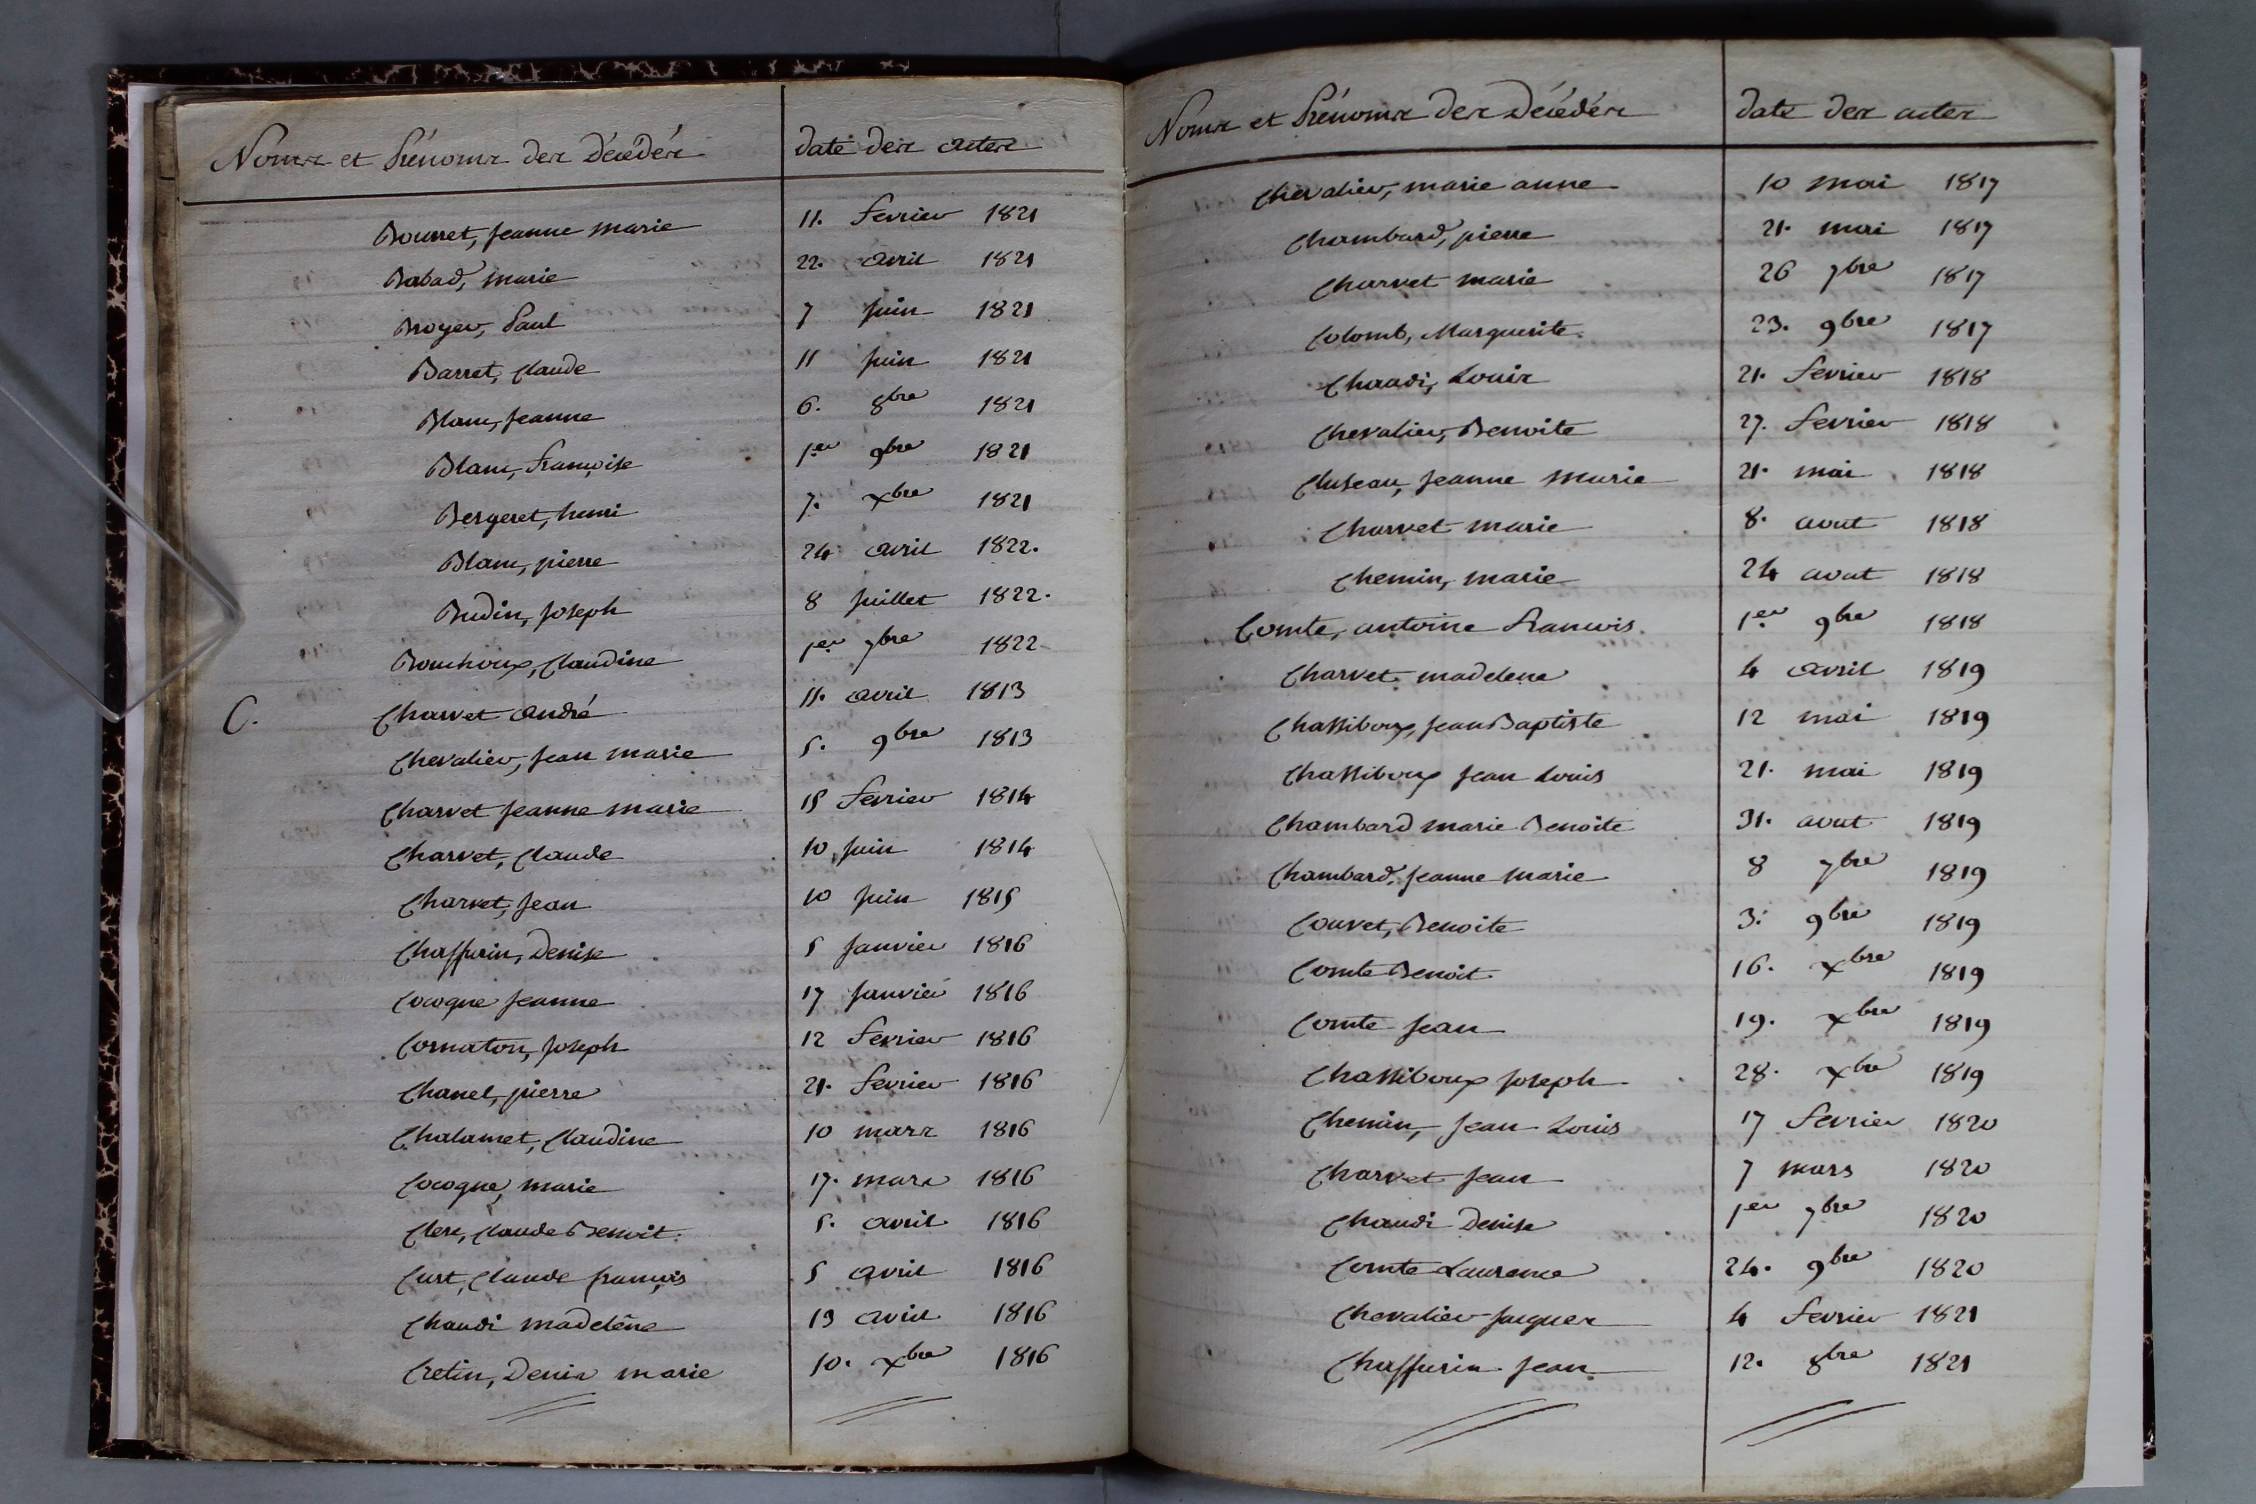 Noms et Prénoms des Décédés date des actes
Bourret, jeanne marie 11. fevrier 1821
Babad, marie 22. avril 1821
Broyer, Paul 7 juin 1821
Barret, Claude 11 juin 1821
Blanc, jeanne 6. 8bre 1821
Blanc, françoise 1er 9bre 1821
Bergeret, henri 7. xbre 1821
Blanc, pierre 24 avril 1822.
Budin, joseph 8 juillet 1822.
Bouchoux, Claudine 1er 7bre 1822
C. Charvet andré 11. avril 1813
Chevalier, jean marie 5. 9bre 1813
Charvet jeanne marie 15 fevrier 1814
Charvet, Claude 10 juin 1814
Charvet, jean 10 juin 1815
Chaffurin, Denise 5 janvier 1816
Cocogne jeanne 17 janvier 1816
Cornaton, joseph 12 fevrier 1816
Chanel, pierre 21. fevrier 1816
Chalamet, Claudine 10 mars 1816
Cocogne, marie 17. mars 1816
Clerc, Claude Benoit 5. avril 1816
Curt, Claude françois 5 avril 1816
Chaudi madelène 13 avril 1816
Cretin, Denis marie 10. xbre 1816
Noms et Prénoms des Décédés date des actes
Chevalier, marie anne 10 mai 1817
Chambard, pierre 21. mai 1817
Charvet marie 26 7bre 1817
Colomb, Marguerite. 23. 9bre 1817
Chaudi, Louis 21. fevrier 1818
Chevalier, Benoite 27. fevrier 1818
Cluseau, jeanne Marie 21. mai 1818
Charvet marie 8. aout 1818
Chemin, marie 24 aout 1818
Comte, antoine francois. 1er 9bre 1818
Charvet madelene 4 avril 1819
Chassiboux, jean Baptiste 12 mai 1819
Chassiboux jean Louis 21. mai 1819
Chambard marie Benoite 31. aout 1819
Chambard, jeanne marie 8 7bre 1819
Couvet, Benoite 3. 9bre 1819
Comte Benoit 16. xbre 1819
Comte jean 19. xbre 1819
Chassiboux joseph 28. xbre 1819
Chemin, jean Louis 17 fevrier 1820
Charvet jean 7 mars 1820
Chaudi Denise 1er 7bre 1820
Comte Laurence 24. 9bre 1820
Chevalier jacques 4 fevrier 1821
Chaffurin jean 12. 8bre 1821